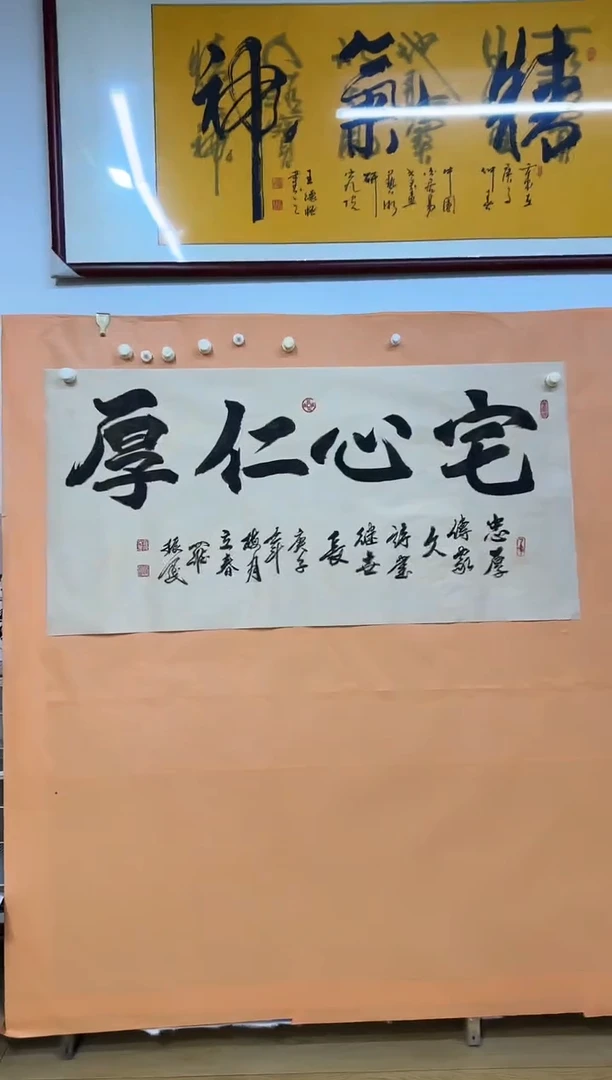 精氣神
中國
藝術
研
究院
宅心仁厚
忠厚
傳家
久
詩書
繼世
長
庚子
年
梅月
立春
羅
振